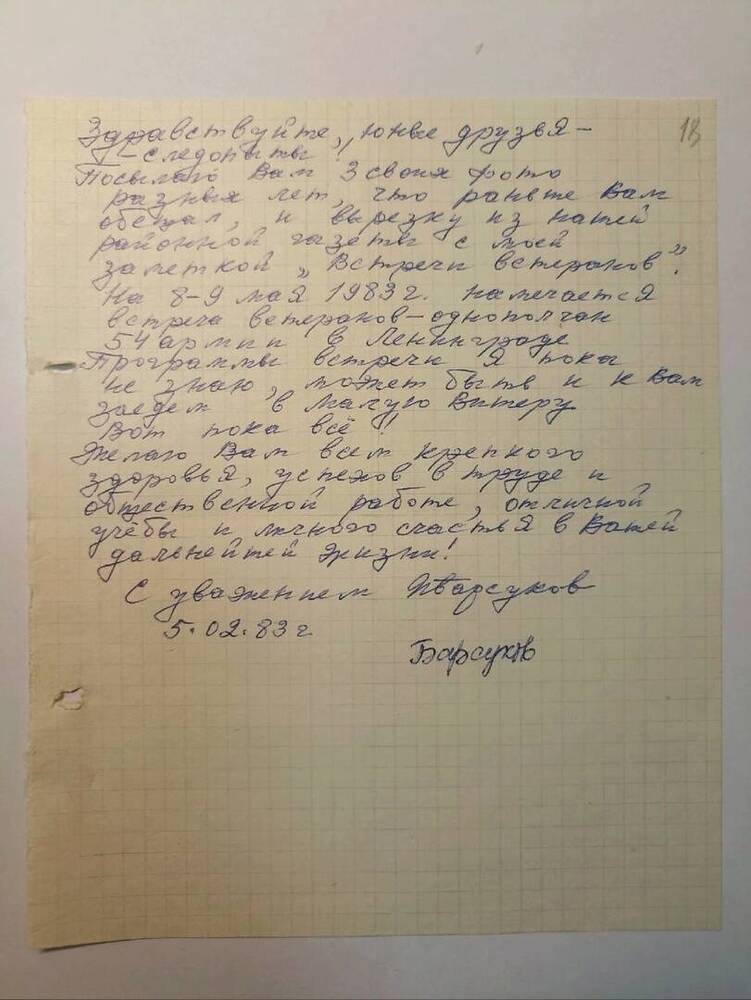 18
Здравствуйте, юные друзья –
– следопыты!
Посылаю Вам 3 своих фото
разных лет, что раньше Вам
обещал, и вырезку из нашей
районной газеты с моей
заметкой „Встречи ветеранов”.
На 8–9 мая 1983 г. намечается
встреча ветеранов-однополчан
54 армии в Ленинграде
Программы встречи я пока
не знаю, может быть и к Вам
заедем в Малую Вишеру
Вот пока всё!
Желаю Вам всем крепкого
здоровья, успехов в труде и
общественной работе, отличной
учёбы и личного счастья в Вашей
дальнейшей жизни!
С уважением Барсуков
5.02.83 г
Барсуков